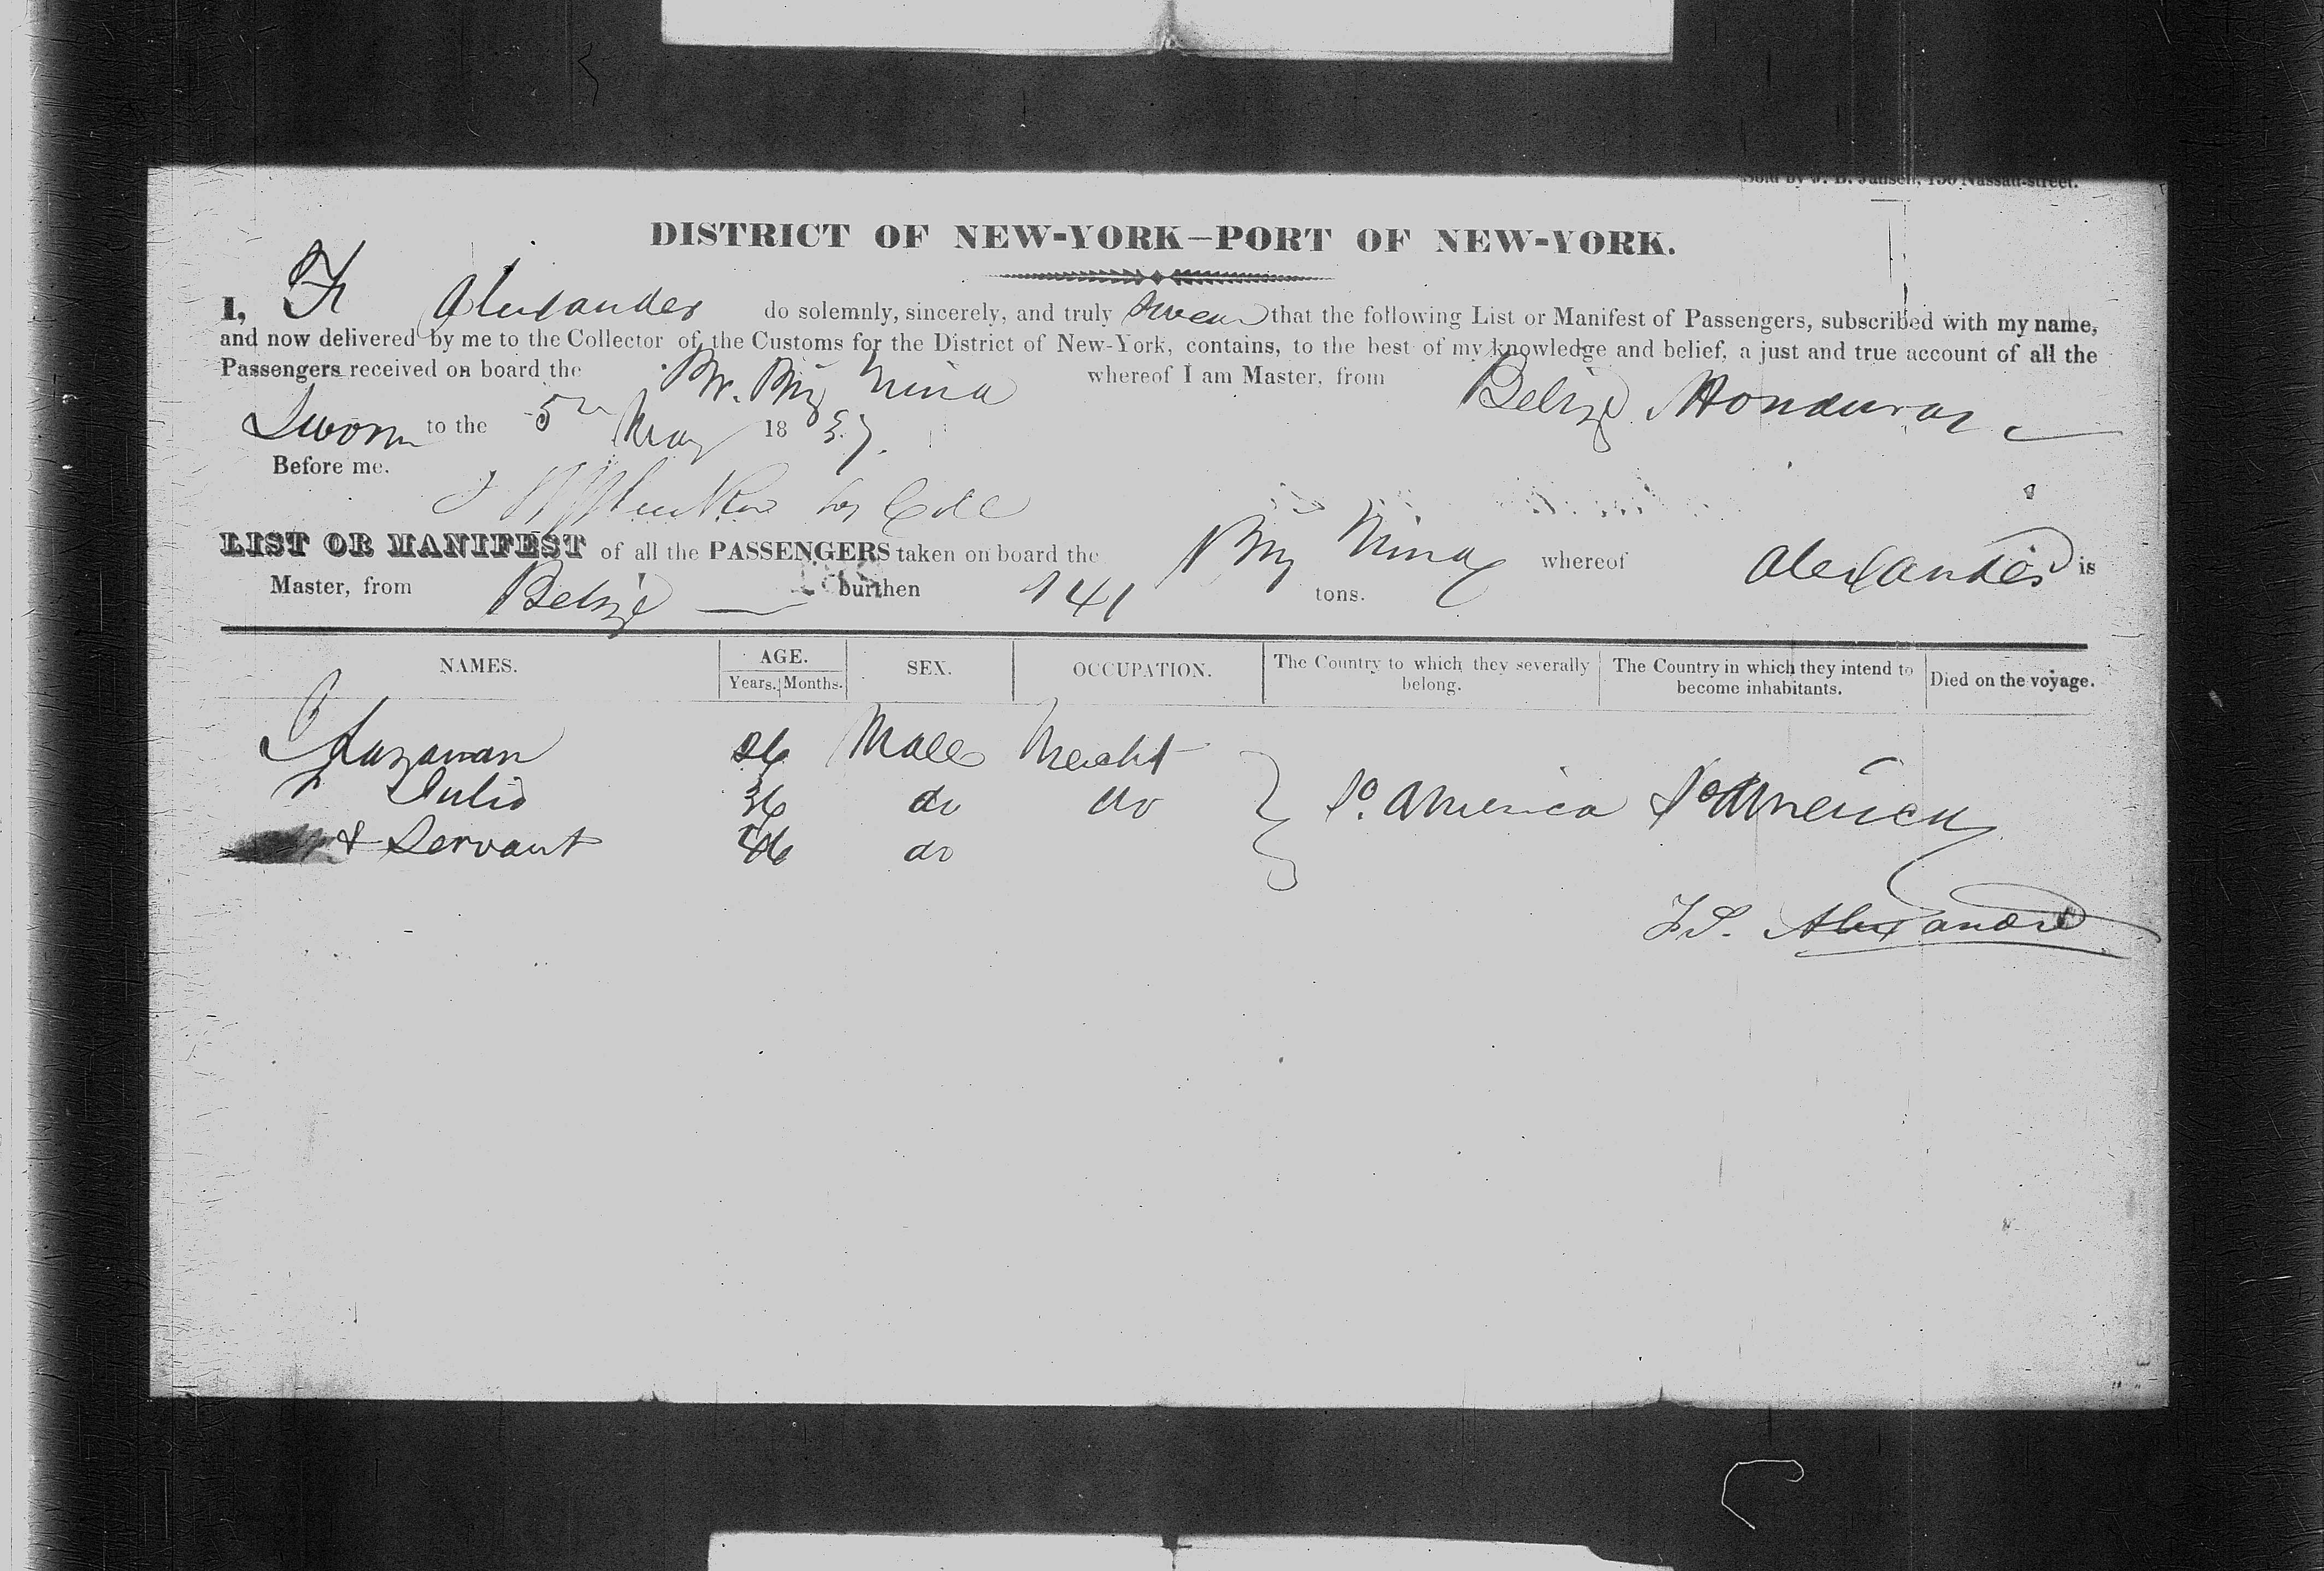 Sold by J. D. Jansen, 150 Nassau-street.
DISTRICT OF NEW-YORK—PORT OF NEW-YORK.
I, Fr Alexander do solemnly, sincerely, and truly swear that the following List or Manifest of Passengers, subscribed with my name,
and now delivered by me to the Collector of the Customs for the District of New-York, contains, to the best of my knowledge and belief, a just and true account of all the
Passengers received on board the Br. Brig Nina whereof I am Master, from Belize Honduras
Sworn to the 5th May 1837.
Before me.
LIST OR MANIFEST of all the PASSENGERS taken on board the Brig Nina whereof Alexander is
Master, from Belize burthen 141 tons.
NAMES. AGE. SEX. OCCUPATION. The Country to which they severally belong. The Country in which they intend to become inhabitants. Died on the voyage.
Years. Months.
Male Mercht
Julio 36 do do So. America So America
& Servant do
F.S. Alexandre